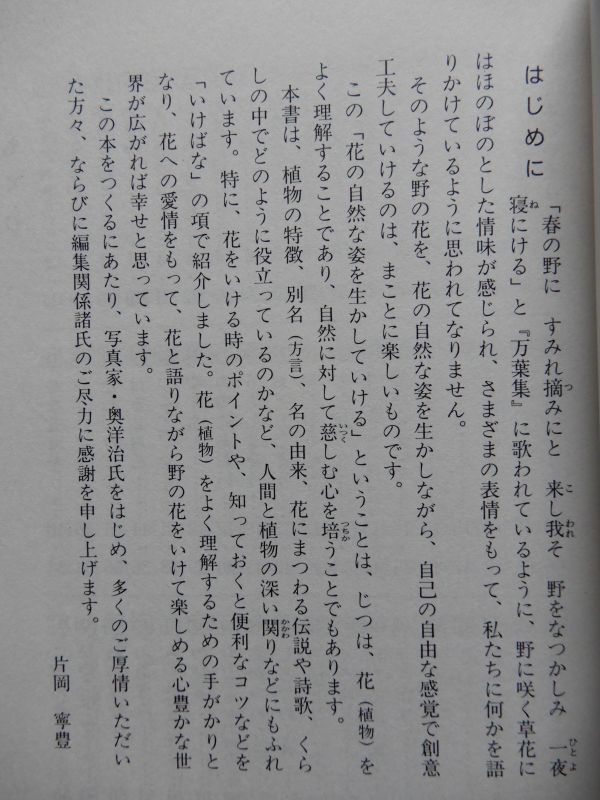 はじめに
「春の野に　すみれ摘みにと　来し我そ　野をなつかしみ　一夜
寝にける」と『万葉集』に歌われているように、野に咲く草花に
はほのぼのとした情味が感じられ、さまざまの表情をもって、私たちに何かを語
りかけているように思われてなりません。
そのような野の花を、花の自然な姿を生かしながら、自己の自由な感覚で創意
工夫していけるのは、まことに楽しいものです。
この「花の自然な姿を生かしていける」ということは、じつは、花（植物）を
よく理解することであり、自然に対して慈しむ心を培うことでもあります。
本書は、植物の特徴、別名（方言）、名の由来、花にまつわる伝説や詩歌、くら
しの中でどのように役立っているのかなど、人間と植物の深い関りなどにもふれ
ています。特に、花をいける時のポイントや、知っておくと便利なコツなどを
「いけばな」の項で紹介しました。花（植物）をよく理解するための手がかりと
なり、花への愛情をもって、花と語りながら野の花をいけて楽しめる心豊かな世
界が広がれば幸せと思っています。
この本をつくるにあたり、写真家・奥洋治氏をはじめ、多くのご厚情いただい
た方々、ならびに編集関係諸氏のご尽力に感謝を申し上げます。
片岡　寧豊